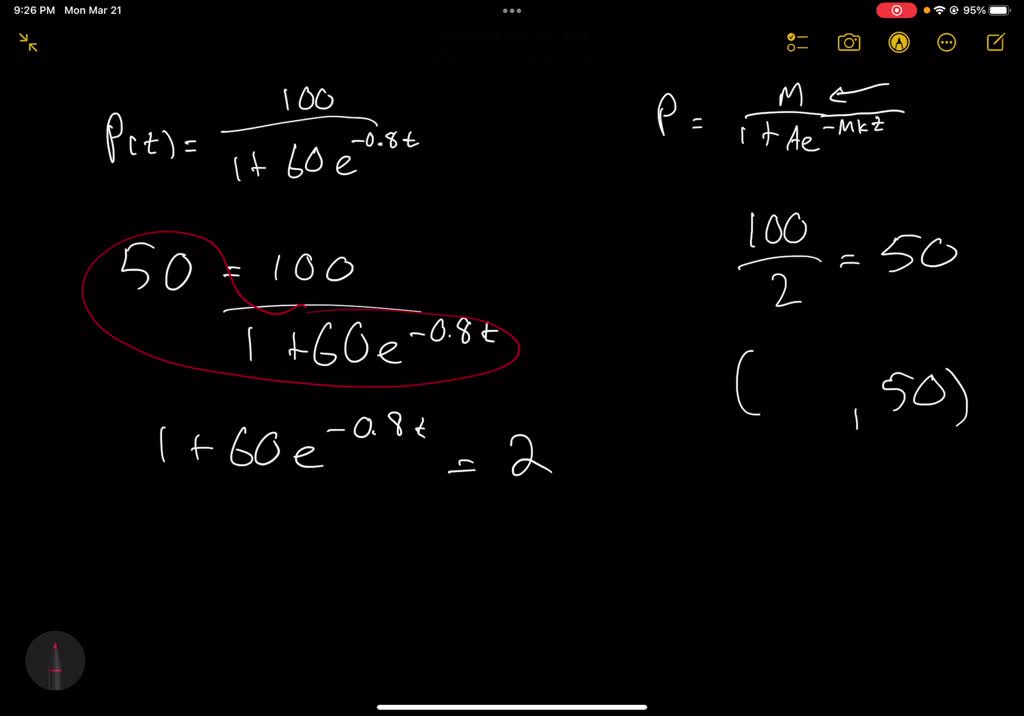 9:26 PM Mon Mar 21
95%
P(t) = 100 / 1 + 60e^-0.8t
P = M / 1 + Ae^-Mkt
50 = 100 / 1 + 60e^-0.8t
100 / 2 = 50
( , 50)
1 + 60e^-0.8t = 2